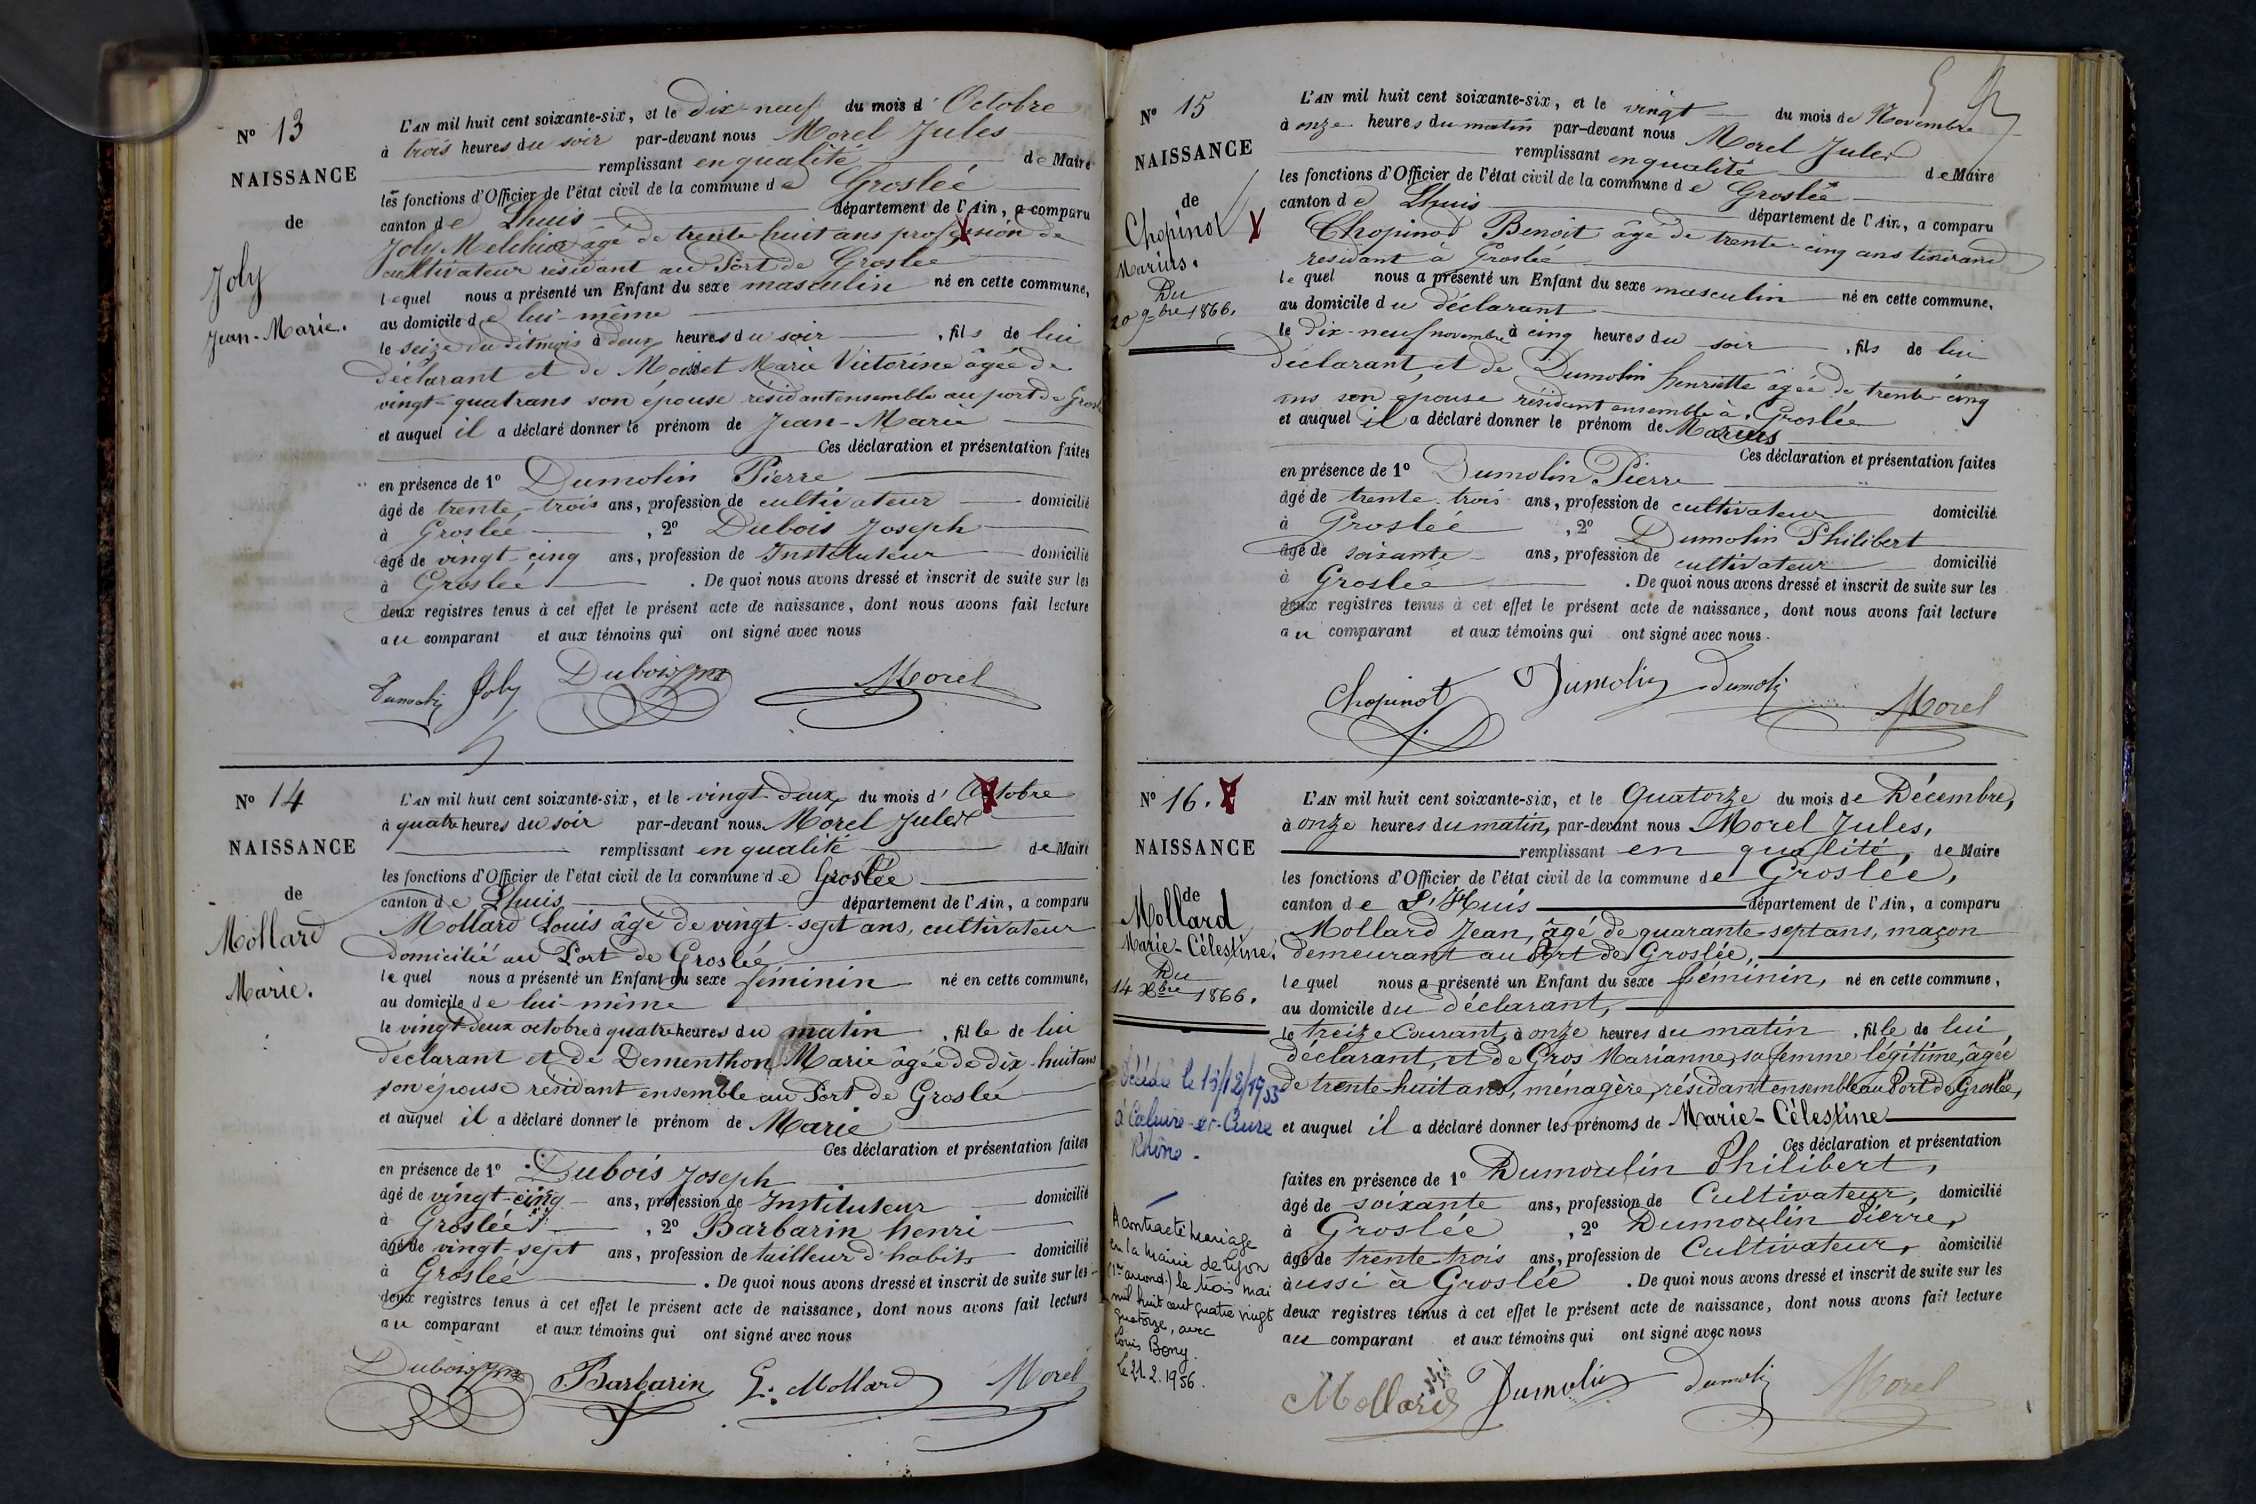 N° 13
NAISSANCE
de
Joly
Jean-Marie.
L'AN mil huit cent soixante-six, et le Dix-neuf du mois d' Octobre
à trois heures du soir par-devant nous Morel Jules
remplissant en qualité de Maire
les fonctions d'Officier de l'état civil de la commune de Groslée
canton de Lhuis département de l'Ain, a comparu
Joly Melchior âgé de trente huit ans profession de
cultivateur résidant au Port de Groslée
lequel nous a présenté un Enfant du sexe masculin né en cette commune,
au domicile de lui-même
le seize du dit mois à deux heures du soir, fils de lui
déclarant et de Marie Victorine âgée de
vingt-quatre ans son épouse résidant ensemble au port de Groslée
et auquel il a déclaré donner le prénom de Jean-Marie
Ces déclaration et présentation faites
en présence de 1° Dumolin Pierre
âgé de trente-trois ans, profession de cultivateur domicilié
à Groslée, 2° Dubois Joseph
âgé de vingt-cinq ans, profession de Instituteur domicilié
à Groslée. De quoi nous avons dressé et inscrit de suite sur les
deux registres tenus à cet effet le présent acte de naissance, dont nous avons fait lecture
au comparant et aux témoins qui ont signé avec nous
Dumolin Joly Dubois Morel
N° 14
NAISSANCE
de
Mollard
Marie.
L'AN mil huit cent soixante-six, et le vingt-deux du mois d' Octobre
à quatre heures du soir par-devant nous Morel Jules
remplissant en qualité de Maire
les fonctions d'Officier de l'état civil de la commune de Groslée
canton de Lhuis département de l'Ain, a comparu
Mollard Louis âgé de vingt-sept ans, cultivateur
domicilié au Port de Groslée
lequel nous a présenté un Enfant du sexe féminin né en cette commune,
au domicile de lui-même
le vingt-deux octobre à quatre heures du matin, fille de lui
déclarant et de Dementhon Marie âgée de dix-huit ans
son épouse résidant ensemble au Port de Groslée
et auquel il a déclaré donner le prénom de Marie
Ces déclaration et présentation faites
en présence de 1° Dubois Joseph
âgé de vingt-cinq ans, profession de Instituteur domicilié
à Groslée, 2° Barbarin henri
âgé de vingt-sept ans, profession de tailleur d'habits domicilié
à Groslée. De quoi nous avons dressé et inscrit de suite sur les
deux registres tenus à cet effet le présent acte de naissance, dont nous avons fait lecture
au comparant et aux témoins qui ont signé avec nous
Dubois Barbarin L. Mollard Morel
N° 15
NAISSANCE
de
Chopinot
Marius.
Du
20 9bre 1866.
L'AN mil huit cent soixante-six, et le vingt du mois de Novembre
à onze heures du matin par-devant nous Morel Jules
remplissant en qualité de Maire
les fonctions d'Officier de l'état civil de la commune de Groslée
canton de Lhuis département de l'Ain, a comparu
Chopinod Benoit âgé de trente-cinq ans tisserand
résidant à Groslée
lequel nous a présenté un Enfant du sexe masculin né en cette commune,
au domicile du déclarant
le dix-neuf novembre à cinq heures du soir, fils de lui
déclarant, et de Dumolin henriette âgée de trente-cinq
ans son épouse résidant ensemble à Groslée
et auquel il a déclaré donner le prénom de Marius
Ces déclaration et présentation faites
en présence de 1° Dumolin Pierre
âgé de trente-trois ans, profession de cultivateur domicilié
à Groslée, 2° Dumolin Philibert
âgé de soixante ans, profession de cultivateur domicilié
à Groslée. De quoi nous avons dressé et inscrit de suite sur les
deux registres tenus à cet effet le présent acte de naissance, dont nous avons fait lecture
au comparant et aux témoins qui ont signé avec nous.
Chopinot Dumolin Dumolin Morel
N° 16.
NAISSANCE
de
Mollard
Marie-Célestine.
Du
14 Xbre 1866.
Décédée le 13/12/1955
à Caluire-et-Cuire
Rhône.
A contracté mariage
en la mairie de Lyon
(1er arrond.) le trois mai
mil huit cent quatre vingt
quatorze, avec
Louis Bony.
le 21.2.1956.
L'AN mil huit cent soixante-six, et le Quatorze du mois de Décembre,
à onze heures du matin, par-devant nous Morel Jules,
remplissant en qualité, de Maire
les fonctions d'Officier de l'état civil de la commune de Groslée,
canton de L'Huis département de l'Ain, a comparu
Mollard Jean, âgé de quarante-sept ans, maçon
demeurant au Port de Groslée,
lequel nous a présenté un Enfant du sexe féminin, né en cette commune,
au domicile du déclarant,
le treize Courant, à onze heures du matin, fille de lui,
déclarant, et de Gros Marianne, sa femme légitime, âgée
de trente-huit ans, ménagère, résidant ensemble au Port de Groslée,
et auquel il a déclaré donner les prénoms de Marie-Célestine
Ces déclaration et présentation
faites en présence de 1° Dumoulin Philibert,
âgé de soixante ans, profession de Cultivateur, domicilié
à Groslée, 2° Dumoulin Pierre,
âgé de trente trois ans, profession de Cultivateur, domicilié
aussi à Groslée. De quoi nous avons dressé et inscrit de suite sur les
deux registres tenus à cet effet le présent acte de naissance, dont nous avons fait lecture
au comparant et aux témoins qui ont signé avec nous
Mollard Dumolin Dumolin Morel